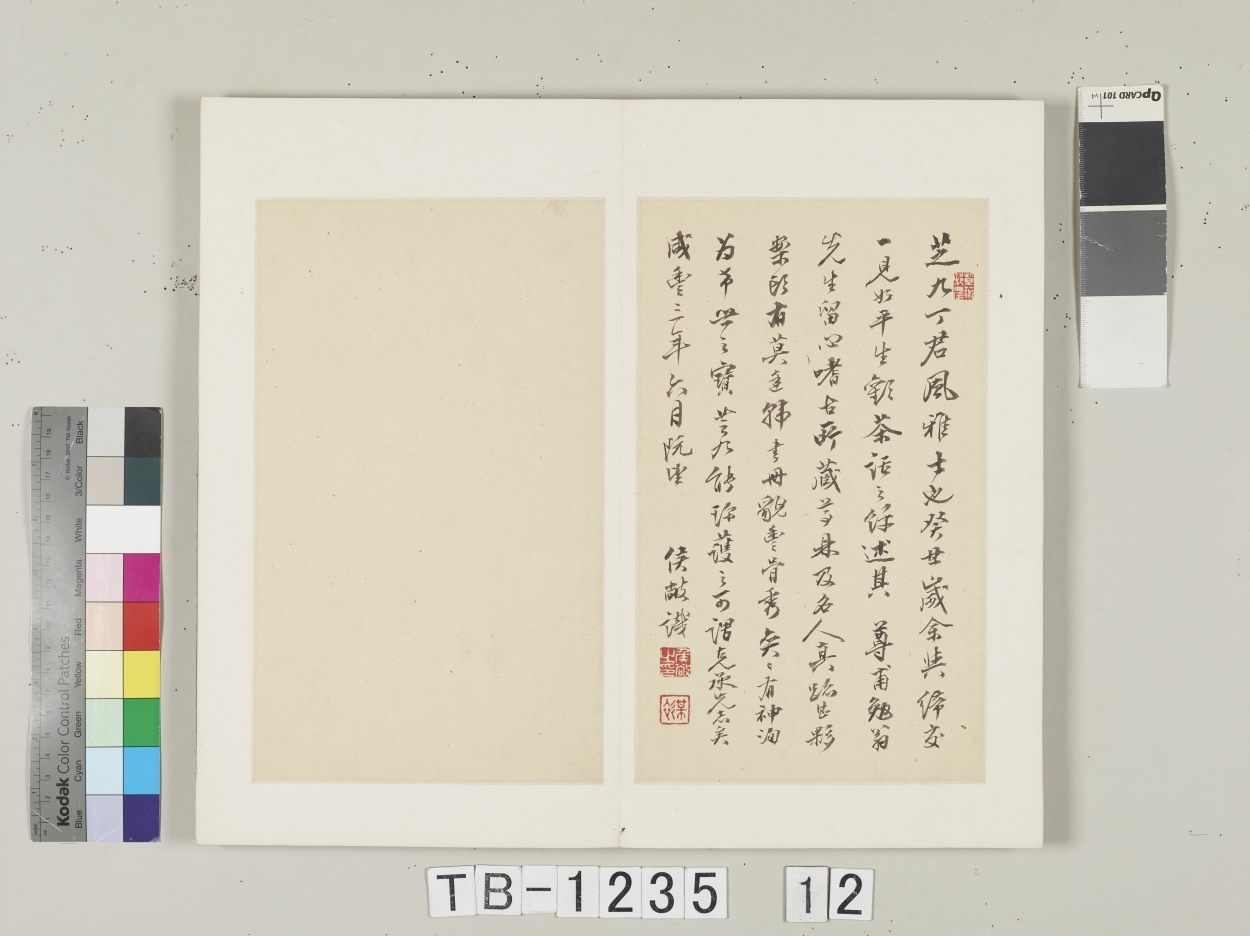 芝九丁君風雅士也癸丑歲余與締交
一見如平生歡茶話之餘述其 尊甫勉翁
先生留心嗜古所藏尊彝及名人真跡甚夥
案頭有莫廷韓書冊貌豐骨秀奕奕有神洵
為希世之寶芝九能珍護之可謂克承先志矣
咸豐三年六月既望 侯敞識
QPCARD 101 v4
Kodak Color Control Patches
© Kodak, 2007 TM: Kodak
Blue Cyan Green Yellow Red Magenta White 3/Color Black
TB-1235 12